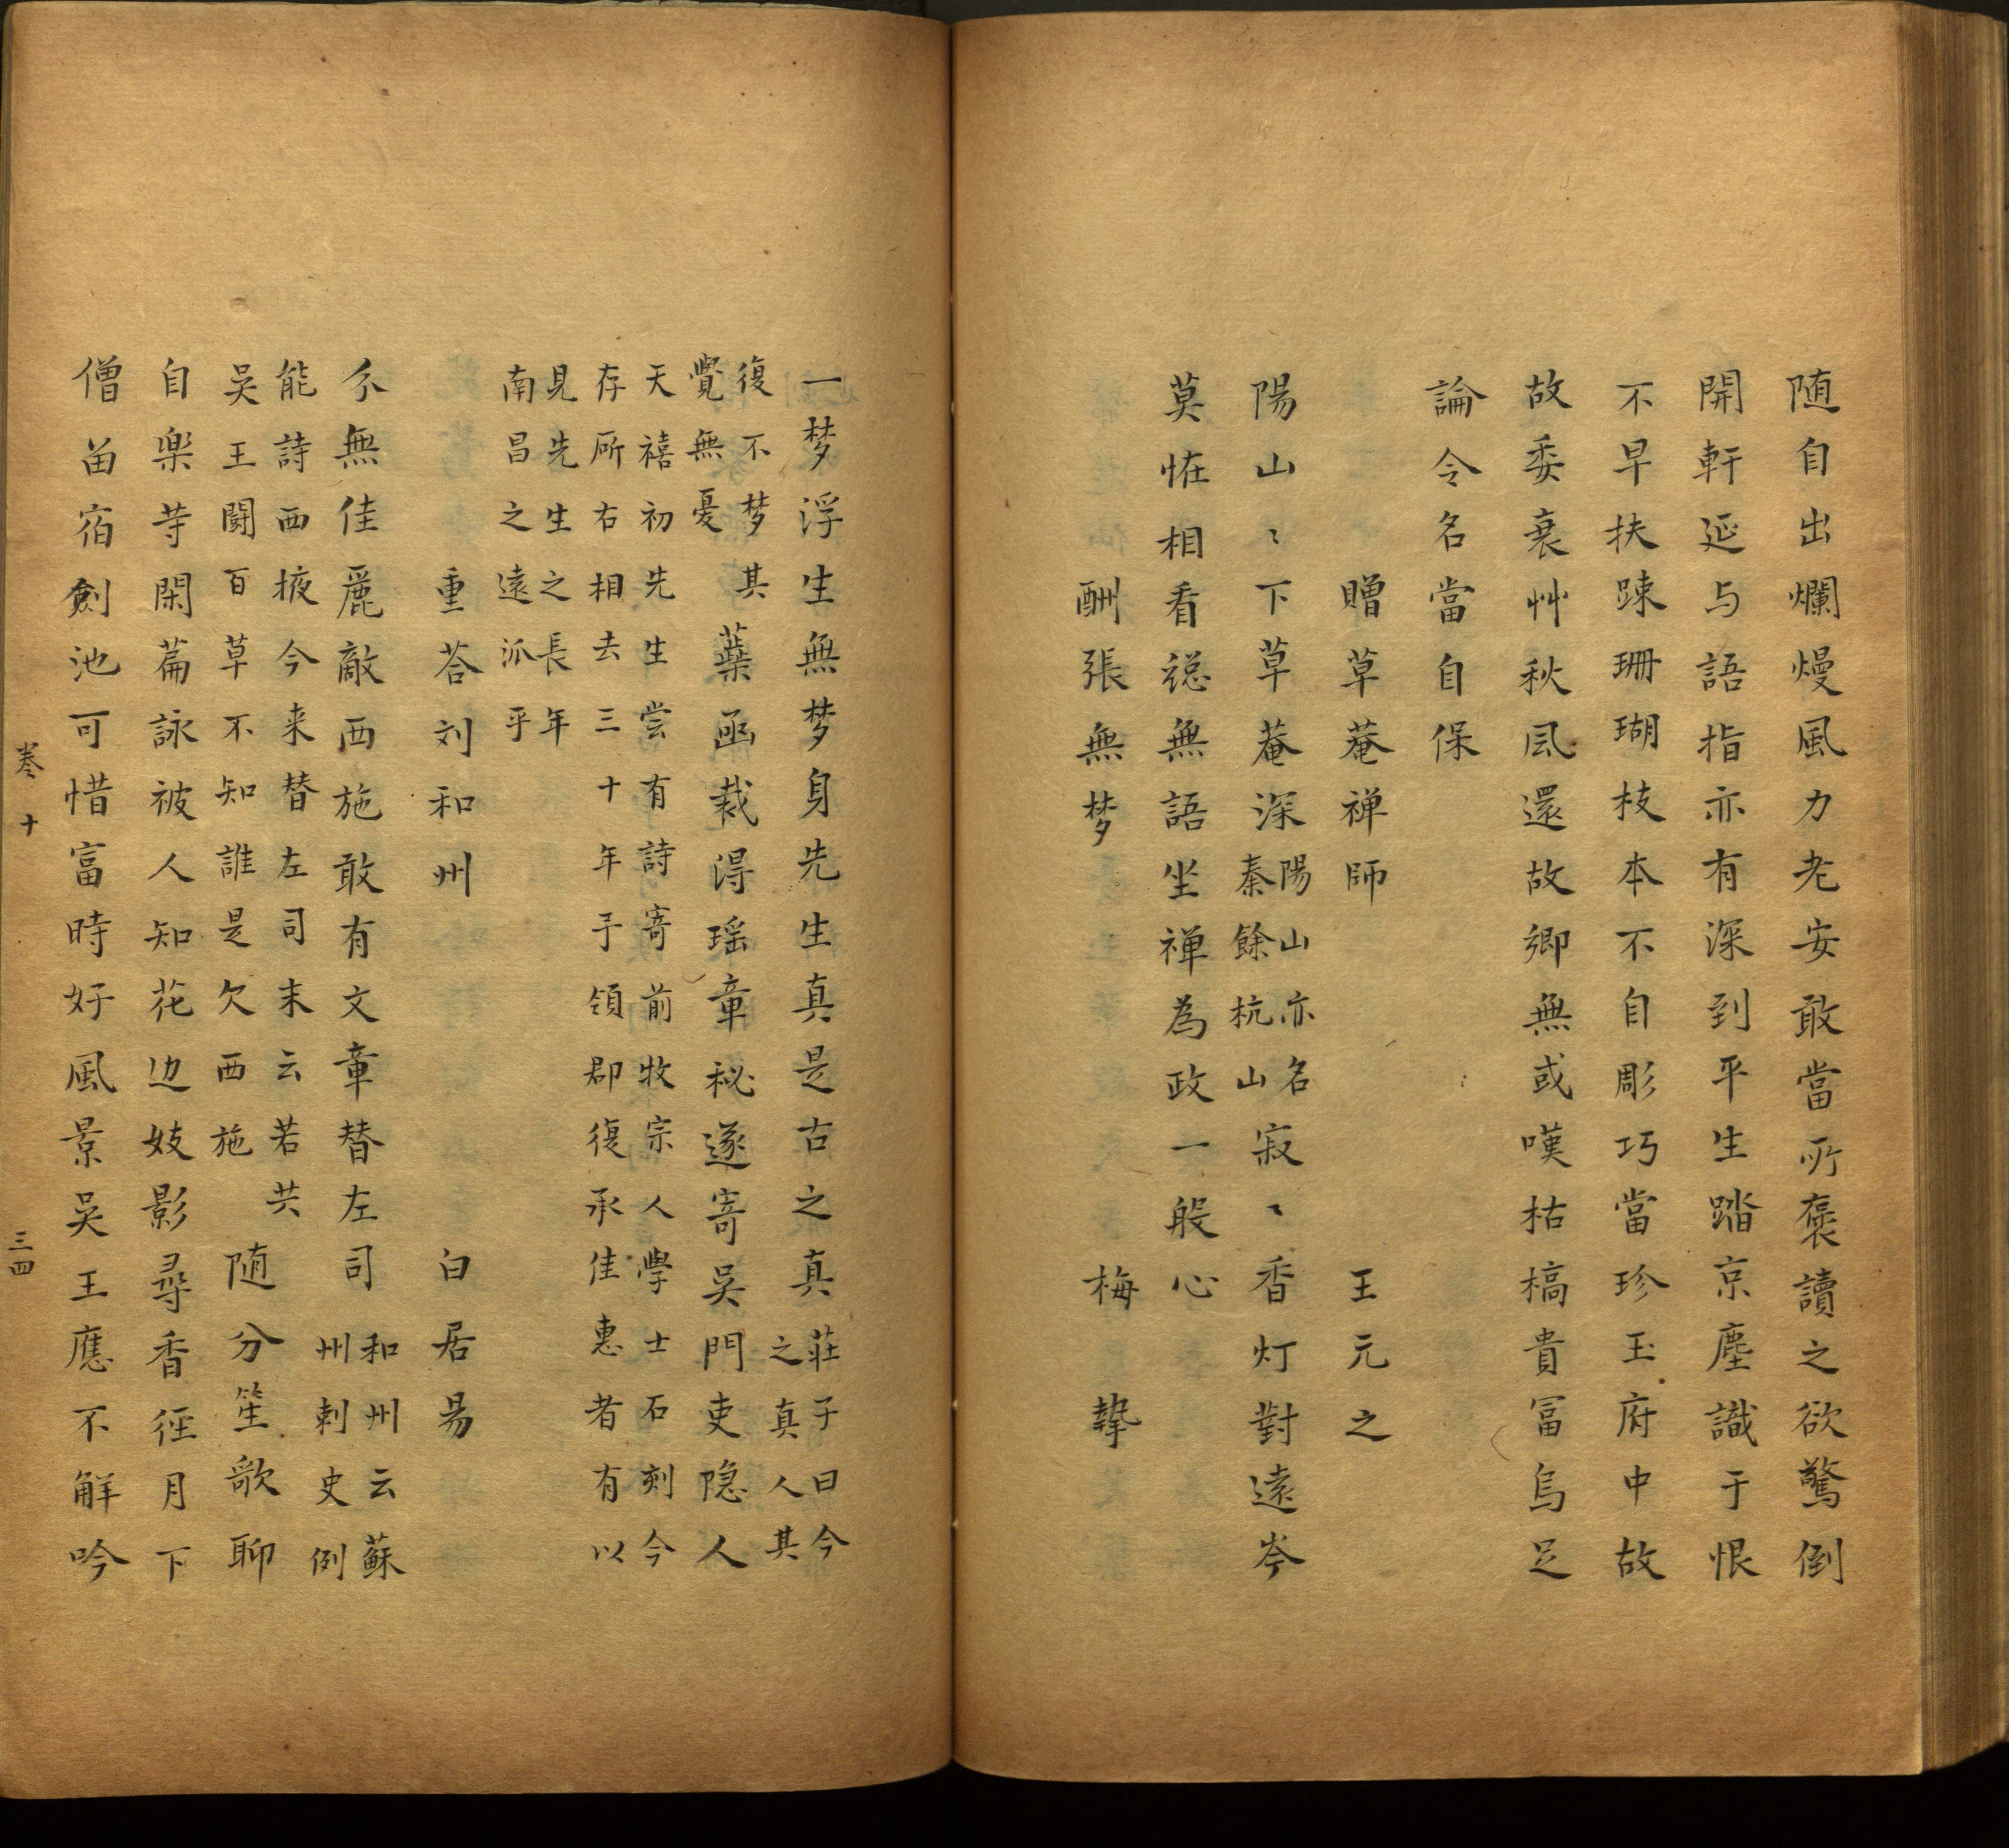 随自出爛熳風力老安敢當所褒讀之欲驚倒
開軒延与語指亦有深到平生踏京塵識于恨
不早扶踈珊瑚枝本不自彫巧當珍玉府中故
故委衰艸秋風還故鄉無或嘆枯槁貴冨烏足
論令名當自保
贈草菴禅師 王元之
陽山〻下草菴深陽山亦名秦餘杭山寂〻香灯對遠岑
莫恠相看㧾無語坐禅為政一般心
酬張無梦 梅摯
一梦浮生無梦身先生真是古之真莊子曰今之真人其
復不梦其覺無憂蘂函裁得瑶章秘遂寄吳門吏隐人
天禧初先生尝有詩寄前牧宗人學士石刻今
存所右相去三十年于領郡復承佳惠者有以
見先生之長年
南昌之遠派乎
重荅刘和州 白居易
分無佳麗敵西施敢有文章替左司和州云蘇州刺史例
能詩西掖今来替左司末云若共
吳王鬬百草不知誰是欠西施随分笙歌聊
自楽等閑篇詠被人知花边妓影尋香徑月下
僧留宿劍池可惜富時好風景吳王應不解吟
卷十
三四